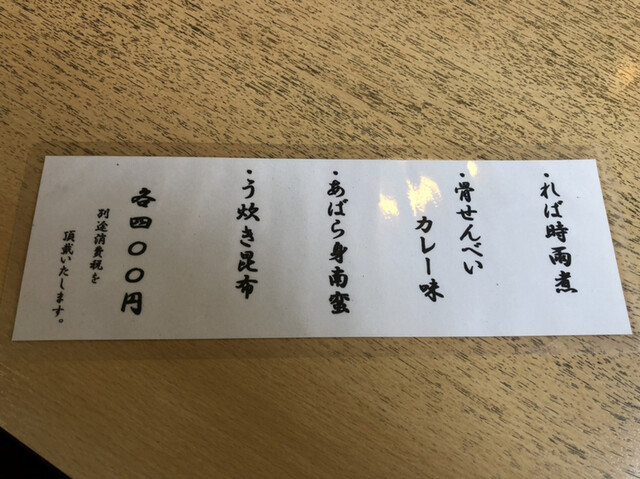 ・れば時雨煮
・骨せんべい
カレー味
・あばら身南蛮
・う炊き昆布
各四〇〇円
別途消費税を
頂戴いたします。